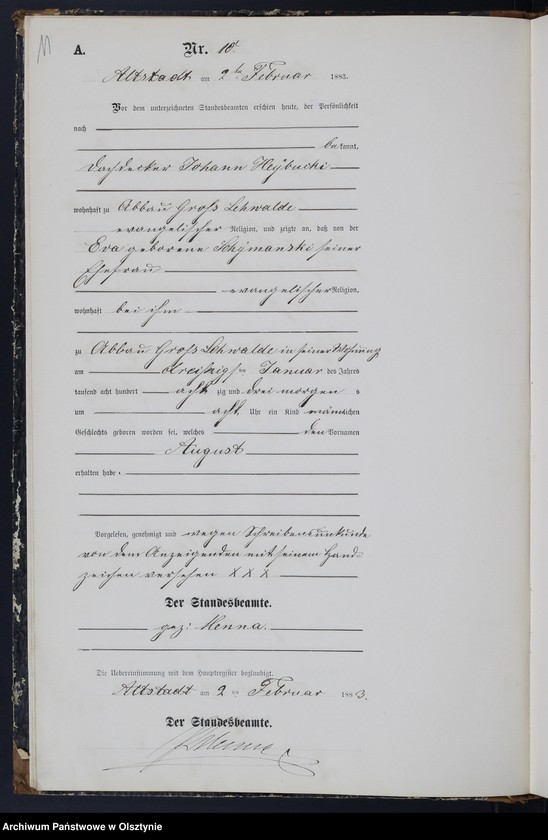 11
A. Nr. 18.
Altstadt am 2ten Februar 1883.
Vor dem unterzeichneten Standesbeamten erschien heute, der Persönlichkeit
nach
bekannt,
Dachdecker Johann Heybucki
wohnhaft zu Abbau Gross Lehwalde
evangelischer Religion, und zeigte an, daß von der
Eva geborene Schymanski seiner
Ehefrau
evangelischer Religion,
wohnhaft bei ihm
zu Abbau Gross Lehwalde in seiner Wohnung
am dreißigsten Januar des Jahres
tausend acht hundert achtzig und drei morgens
um acht Uhr ein Kind männlichen
Geschlechts geboren worden sei, welches den Vornamen
August
erhalten habe.
Vorgelesen, genehmigt und wegen Schreibensunkunde
von dem Anzeigenden mit seinem Hand-
zeichen versehen X X X
Der Standesbeamte.
gez: Menna.
Die Uebereinstimmung mit dem Hauptregister beglaubigt.
Altstadt am 2ten Februar 1883.
Der Standesbeamte.
Menna
Archiwum Państwowe w Olsztynie